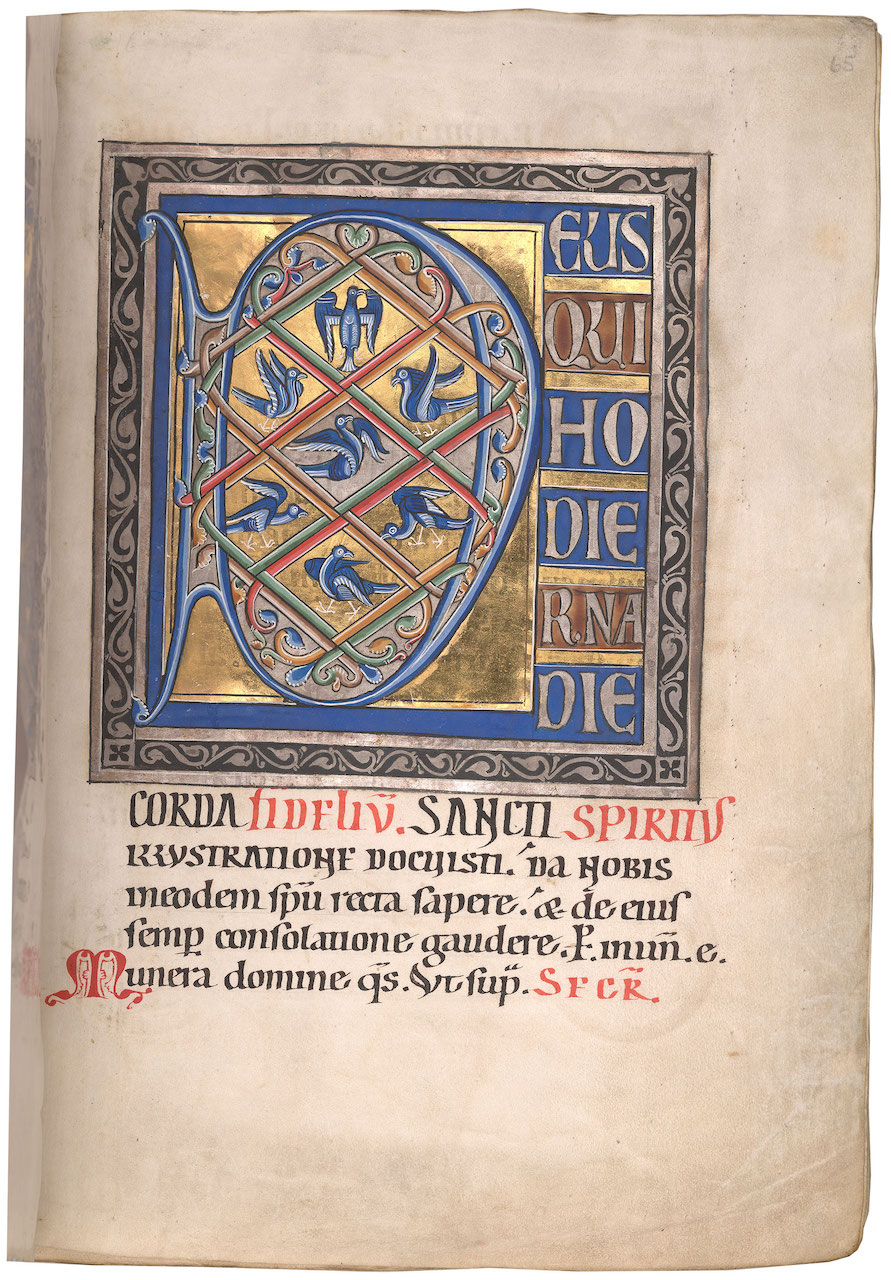 65
DEUS
QUI
HO
DIE
R.NA
DIE
CORDA fIDELIŪ. SANCTI SPIRITUS
ILLUSTRATIONE DOCUISTI. DA NOBIS
ineodem spū recta sapere. & de eius
semp consolatione gaudere. P. inuñ. e.
Munera domine qs. Vt sup. SECR̄.